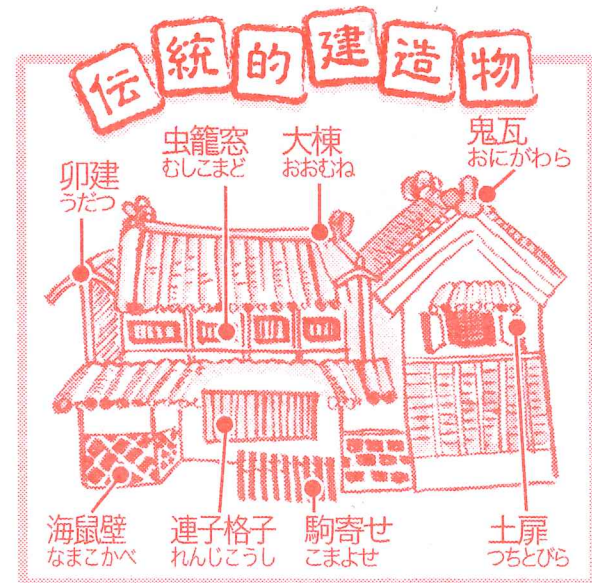 伝統的建造物
虫籠窓
むしこまど
大棟
おおむね
鬼瓦
おにがわら
卯建
うだつ
海鼠壁
なまこかべ
連子格子
れんじこうし
駒寄せ
こまよせ
土扉
つちとびら